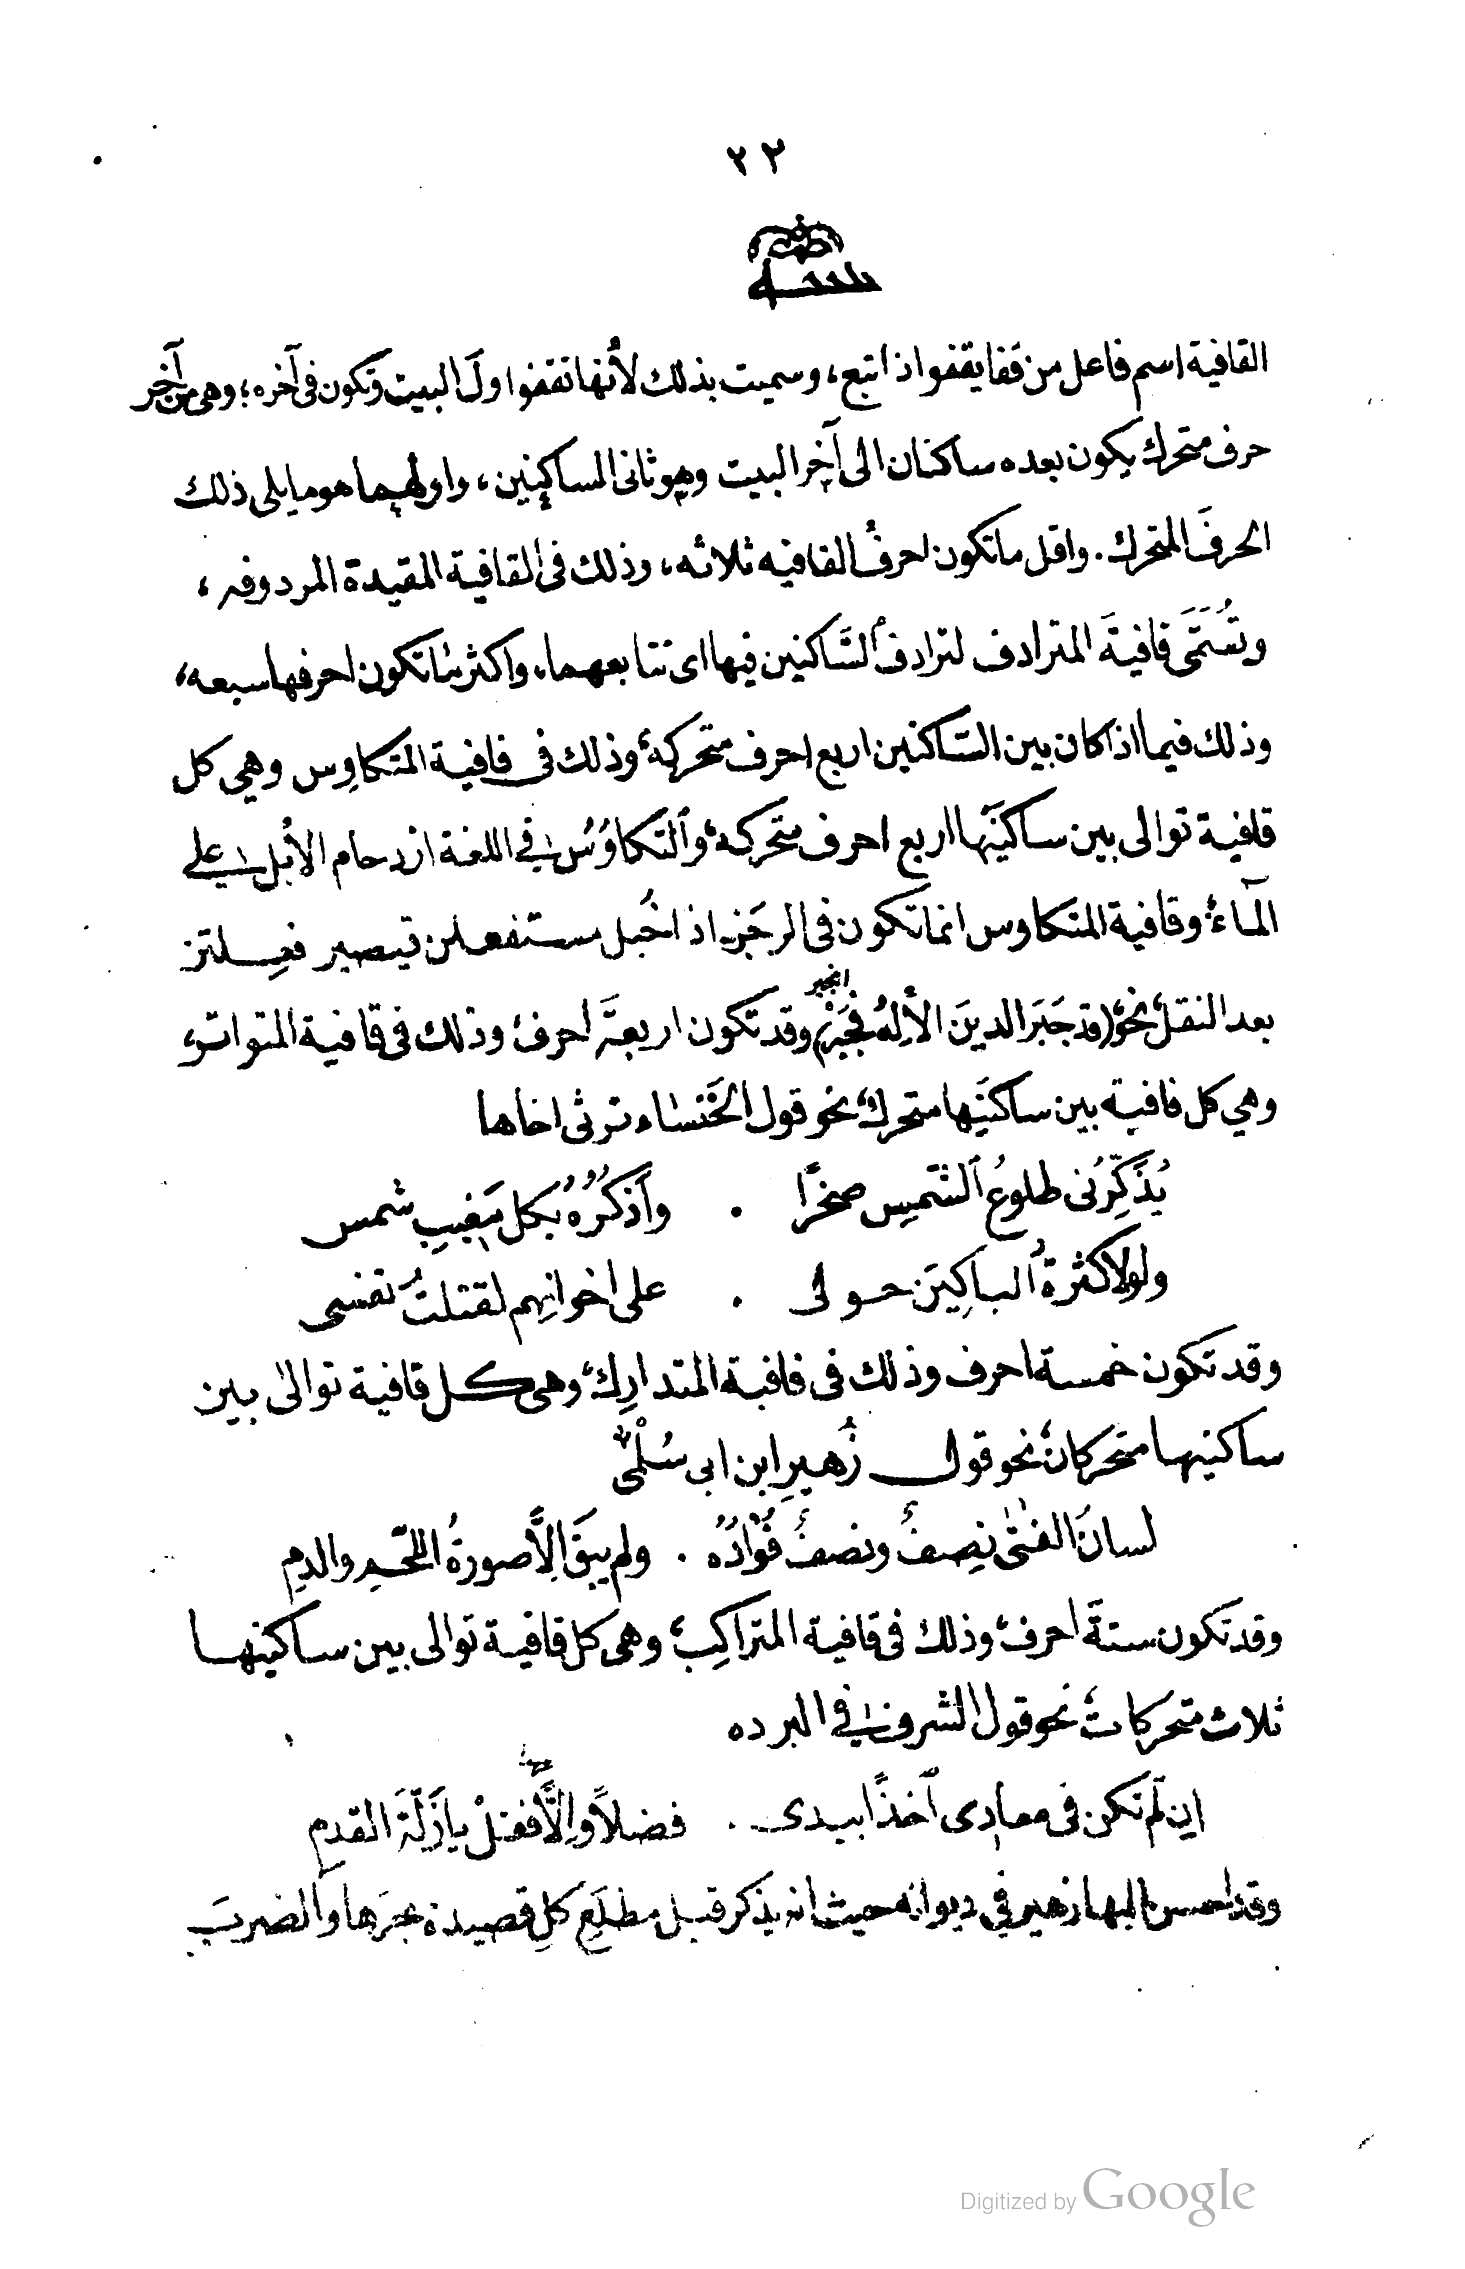 ٢٢
تنبيه
القافية اسم فاعل من قفا يقفو اذا تبع، وسميت بذلك لأنها تقفوا ولَ البيت وتكون فى آخره؛ وهى من آخر
حرف متحرك يكون بعده ساكنان الى آخر البيت وهو ثانى الساكنين، واولهما هو ما يلى ذلك
الحرفَ المتحرك. واقل ما تكون احرفُ القافيه ثلاثه، وذلك فى القافية المقيدة المردوفه،
وتُسَمَّى قافيةَ المترادف لترادف السَّاكنين فيها اى تتابعهما، واكثر ما تكون احرفها سبعه،
وذلك فيما اذا كان بين السَّاكنين اربع احرف متحركه؛ وذلك فى قافية المتكاوِس وهي كل
قافية توالى بين ساكنَيها اربع احرف متحركه؛ والتكاوُسُ في اللغة ازدحام الأبل على
المآء؛ وقافية المتكاوس انما تكون فى الرجَز، اذ اخُبل مستفعلن فيصير فعِلتن
بعد النقل؛ نحو؛ (قد جَبَرَ الدينَ الألِهُ فجَبَرْ) وقد تكون اربعةَ احرف؛ وذلك فى قافية المتواتر،
انجبر
وهي كل قافية بين ساكنَيها متحرك؛ نحو قول الخَنساء ترثى اخاها
يُذَكِّرُنى طلوعُ الشمسِ صخرًا . واَذكُرُهُ بكل مَغيبِ شمس
ولولا كثرةُ الباكِينَ حولى . على اخوانِهم لقتلتُ نفسى
وقد تكون خمسة احرف وذلك فى قافية المتدارِك؛ وهى كل قافية توالىٰ بين
ساكنيها متحركان؛ نحو قول زُهيرِ ابن ابى سُلْمىٰ
لسانُ الفتىٰ نِصفٌ ونصفٌ فُؤادُه . ولم يبقَ الاَّ صورةُ اللحْمِ والدمِ
وقد تكون ستةَ احرف؛ وذلك فى قافية المتراكِب؛ وهى كل قافية توالى بين ساكنيها
ثلاث متحركات؛ نحو قول الشرف في البرده
ان لَم تكن فى معادِى آخذًا بيدى . فضلاً والاَّ فقلْ يا زَلَّةَ القدمِ
وقد احسن البها زهير في ديوانه حيث انه يذكر قبل مطلَعِ كلِ قصيدة بحرَها والضربَ
Digitized by Google